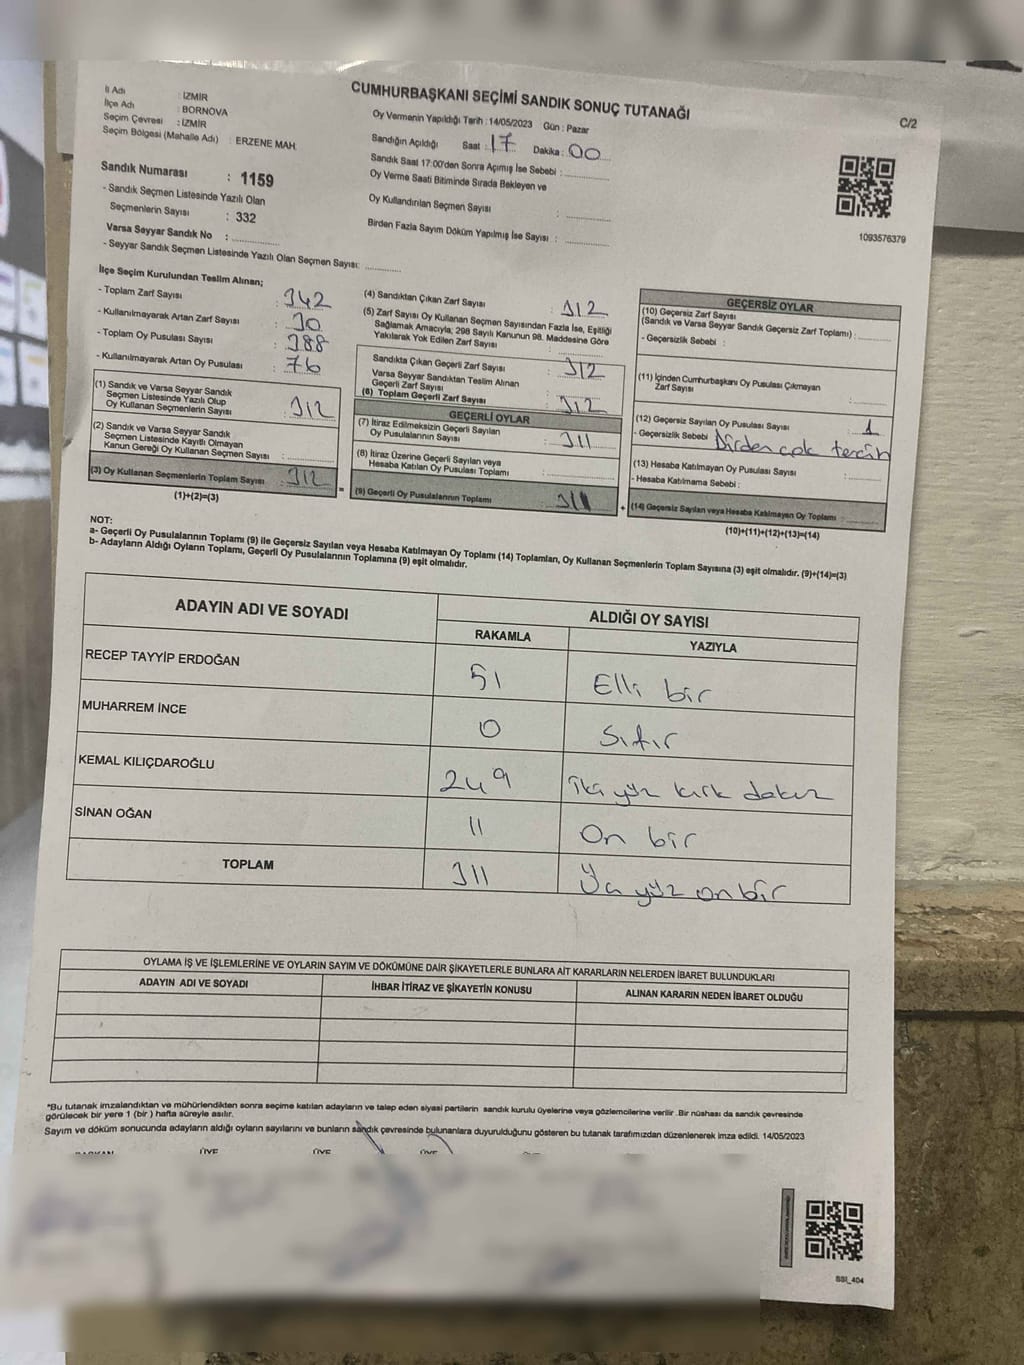 CUMHURBAŞKANI SEÇİMİ SANDIK SONUÇ TUTANAĞI
C/2
İl Adı : İZMİR
İlçe Adı : BORNOVA
Seçim Çevresi : İZMİR
Seçim Bölgesi (Mahalle Adı) : ERZENE MAH.
Oy Vermenin Yapıldığı Tarih : 14/05/2023 Gün : Pazar
Sandığın Açıldığı Saat : 17 Dakika : 00
Sandık Saat 17:00'den Sonra Açımış İse Sebebi :
Oy Verme Saati Bitiminde Sırada Bekleyen ve
Oy Kullandırılan Seçmen Sayısı :
Birden Fazla Sayım Döküm Yapılmış İse Sayısı :
1093576379
Sandık Numarası : 1159
- Sandık Seçmen Listesinde Yazılı Olan
Seçmenlerin Sayısı : 332
Varsa Seyyar Sandık No :
- Seyyar Sandık Seçmen Listesinde Yazılı Olan Seçmen Sayısı:
İlçe Seçim Kurulundan Teslim Alınan;
- Toplam Zarf Sayısı : 342
- Kullanılmayarak Artan Zarf Sayısı : 30
- Toplam Oy Pusulası Sayısı : 388
- Kullanılmayarak Artan Oy Pusulası : 76
(1) Sandık ve Varsa Seyyar Sandık
Seçmen Listesinde Yazılı Olup
Oy Kullanan Seçmenlerin Sayısı : 312
(2) Sandık ve Varsa Seyyar Sandık
Seçmen Listesinde Kayıtlı Olmayan
Kanun Gereği Oy Kullanan Seçmen Sayısı :
(3) Oy Kullanan Seçmenlerin Toplam Sayısı : 312
(1)+(2)=(3)
(4) Sandıktan Çıkan Zarf Sayısı : 312
(5) Zarf Sayısı Oy Kullanan Seçmen Sayısından Fazla İse, Eşitliği
Sağlamak Amacıyla; 298 Sayılı Kanunun 98. Maddesine Göre
Yakılarak Yok Edilen Zarf Sayısı :
Sandıkta Çıkan Geçerli Zarf Sayısı : 312
Varsa Seyyar Sandıktan Teslim Alınan
Geçerli Zarf Sayısı :
(6) Toplam Geçerli Zarf Sayısı : 312
GEÇERLİ OYLAR
(7) İtiraz Edilmeksizin Geçerli Sayılan
Oy Pusulalarının Sayısı : 311
(8) İtiraz Üzerine Geçerli Sayılan veya
Hesaba Katılan Oy Pusulası Toplamı :
= (9) Geçerli Oy Pusulalarının Toplamı : 311
GEÇERSİZ OYLAR
(10) Geçersiz Zarf Sayısı
(Sandık ve Varsa Seyyar Sandık Geçersiz Zarf Toplamı) :
- Geçersizlik Sebebi :
(11) İçinden Cumhurbaşkanı Oy Pusulası Çıkmayan
Zarf Sayısı :
(12) Geçersiz Sayılan Oy Pusulası Sayısı : 1
- Geçersizlik Sebebi : Birden çok tercih
(13) Hesaba Katılmayan Oy Pusulası Sayısı :
- Hesaba Katılmama Sebebi :
+ (14) Geçersiz Sayılan veya Hesaba Katılmayan Oy Toplamı :
(10)+(11)+(12)+(13)=(14)
NOT:
a- Geçerli Oy Pusulalarının Toplamı (9) ile Geçersiz Sayılan veya Hesaba Katılmayan Oy Toplamı (14) Toplamları, Oy Kullanan Seçmenlerin Toplam Sayısına (3) eşit olmalıdır. (9)+(14)=(3)
b- Adayların Aldığı Oyların Toplamı, Geçerli Oy Pusulalarının Toplamına (9) eşit olmalıdır.
ADAYIN ADI VE SOYADI
ALDIĞI OY SAYISI
RAKAMLA YAZIYLA
RECEP TAYYİP ERDOĞAN 51 Elli bir
MUHARREM İNCE 0 Sıfır
KEMAL KILIÇDAROĞLU 249 iki yüz kırk dokuz
SİNAN OĞAN 11 On bir
TOPLAM 311 Üç yüz on bir
OYLAMA İŞ VE İŞLEMLERİNE VE OYLARIN SAYIM VE DÖKÜMÜNE DAİR ŞİKAYETLERLE BUNLARA AİT KARARLARIN NELERDEN İBARET BULUNDUKLARI
ADAYIN ADI VE SOYADI İHBAR İTİRAZ VE ŞİKAYETİN KONUSU ALINAN KARARIN NEDEN İBARET OLDUĞU
*Bu tutanak imzalandıktan ve mühürlendikten sonra seçime katılan adayların ve talep eden siyasi partilerin sandık kurulu üyelerine veya gözlemcilerine verilir. Bir nüshası da sandık çevresinde
görülecek bir yere 1 (bir) hafta süreyle asılır.
Sayım ve döküm sonucunda adayların aldığı oyların sayılarını ve bunların sandık çevresinde bulunanlara duyurulduğunu gösteren bu tutanak tarafımızdan düzenlenerek imza edildi. 14/05/2023
BAŞKAN ÜYE ÜYE ÜYE
SSİ_404